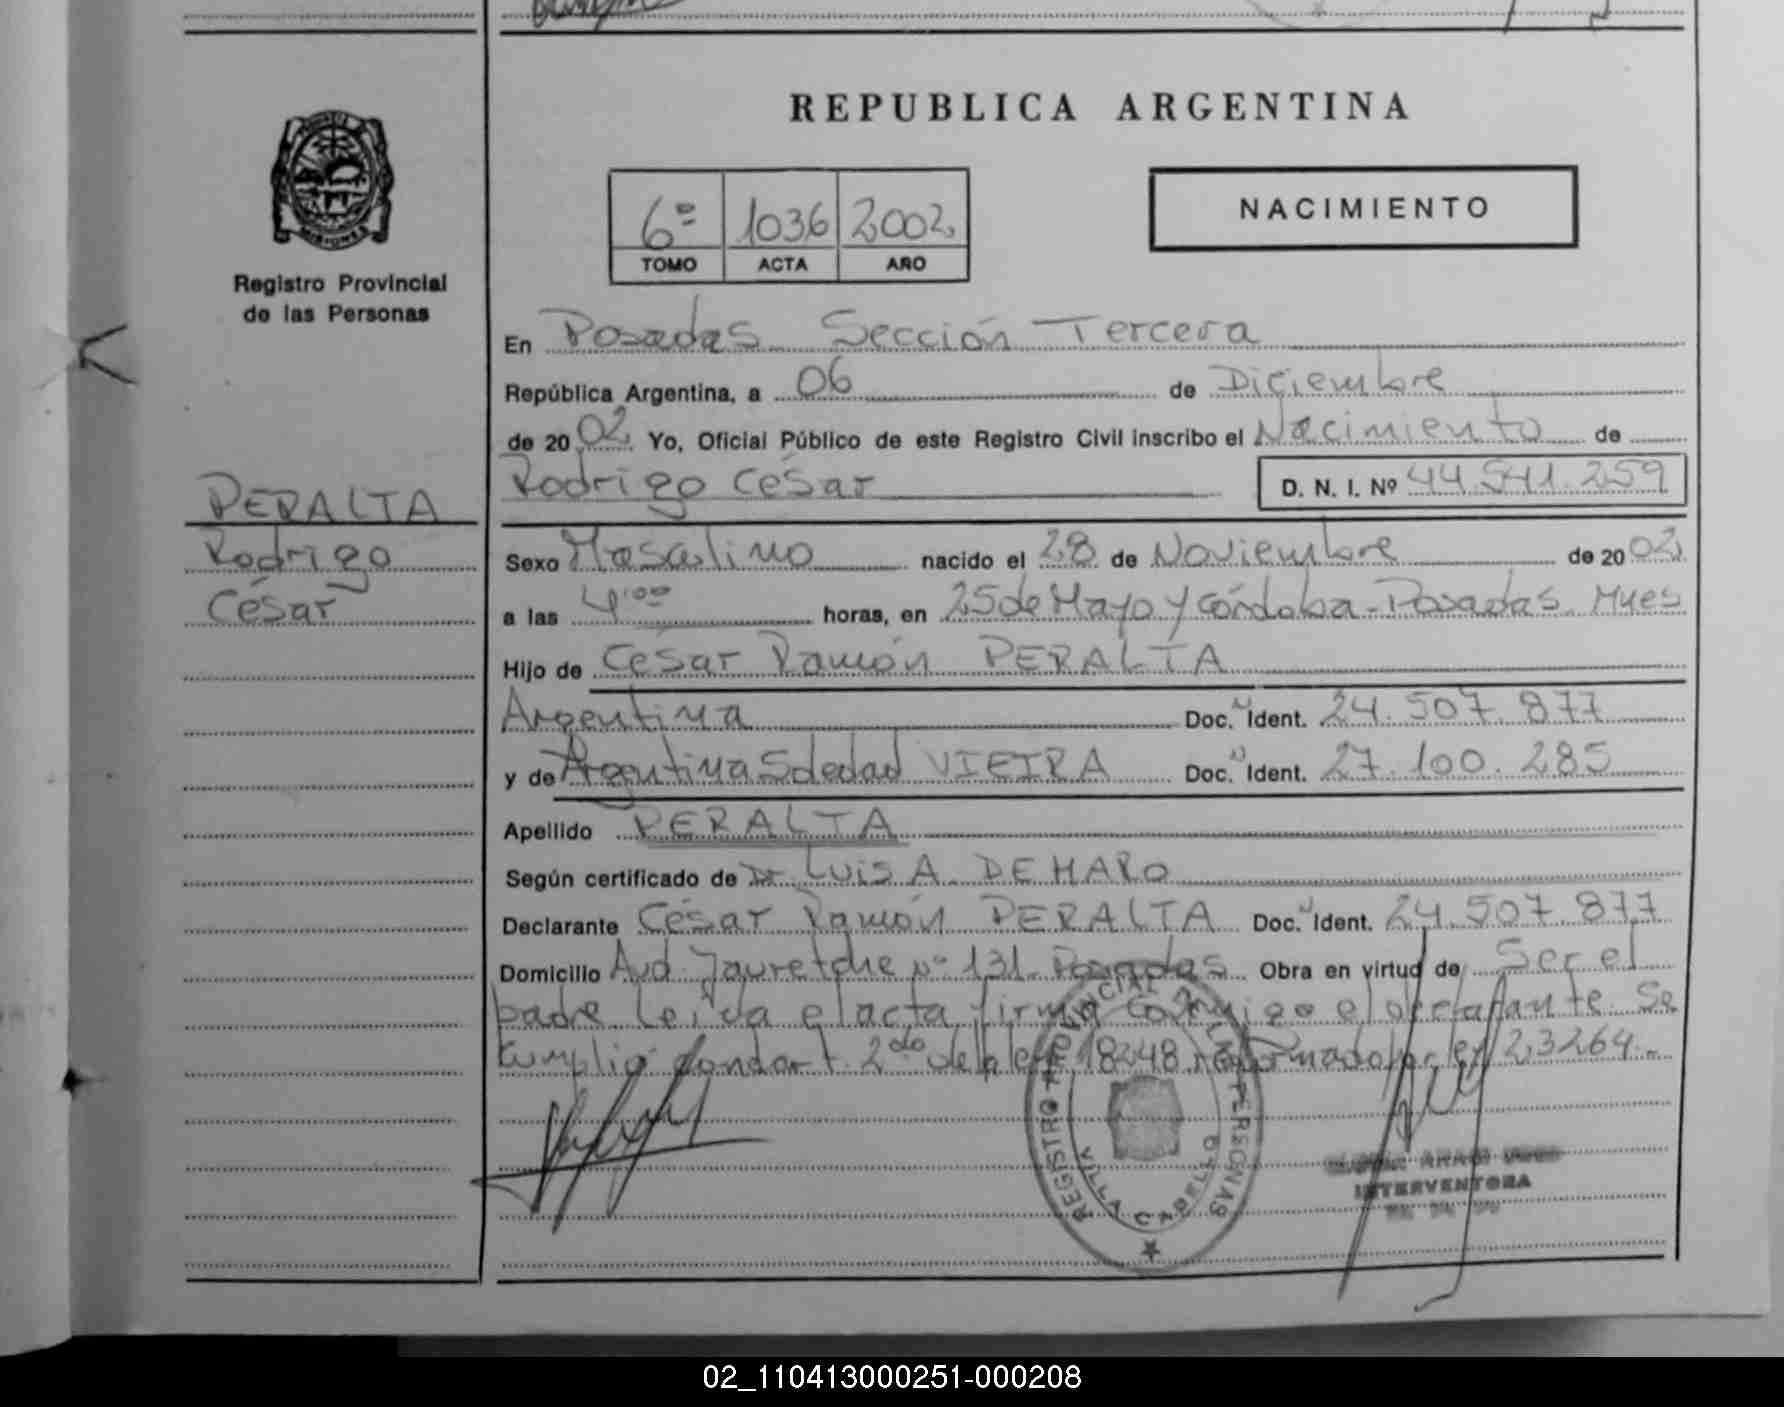 REPUBLICA ARGENTINA
6º 1036 2002
TOMO ACTA AÑO
NACIMIENTO
MISIONES
Registro Provincial
de las Personas
PERALTA
Rodrigo
César
En Posadas Sección Tercera
República Argentina, a 06 de Diciembre
de 2002 Yo, Oficial Público de este Registro Civil inscribo el Nacimiento de
Rodrigo César D. N. I. Nº 44.541.259
Sexo Masculino nacido el 28 de Noviembre de 2002
a las 4:00 horas, en 25 de Mayo y Córdoba - Posadas Mnes
Hijo de César Ramón PERALTA
Argentina Doc. Ident. 24.507.877
y de Argentina Soledad VIEIRA Doc. Ident. 27.100.285
Apellido PERALTA
Según certificado de Dr. LUIS A. DE HARO
Declarante César Ramón PERALTA Doc. Ident. 24.507.877
Domicilio Avd. Jauretche nº 131. Posadas Obra en virtud de Ser el
padre leída el acta, firma conmigo el declarante. Se
cumplió con art. 2do de la ley 18248 reformado ley 23264.-
REGISTRO PROVINCIAL DE LAS PERSONAS
VILLA CABELLO
INTERVENTORA
02_110413000251-000208